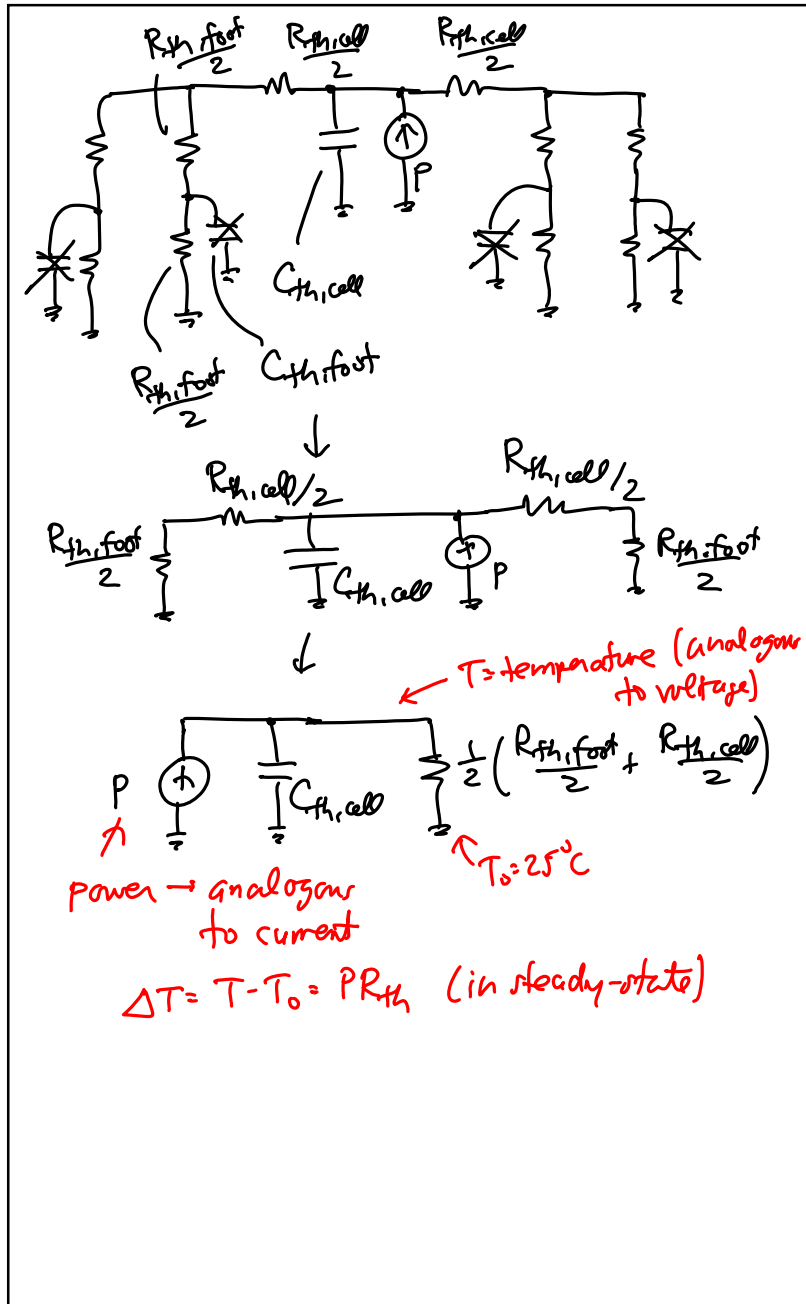 R_th,foot/2 R_th,cell/2 R_th,cell/2
P
C_th,cell
R_th,foot/2 C_th,foot
R_th,cell/2 R_th,cell/2
R_th,foot/2 C_th,cell P R_th,foot/2
T=temperature (analogous
to voltage)
P C_th,cell 1/2 (R_th,foot/2 + R_th,cell/2)
T₀=25°C
power → analogous
to current
ΔT = T - T₀ = PR_th (in steady-state)